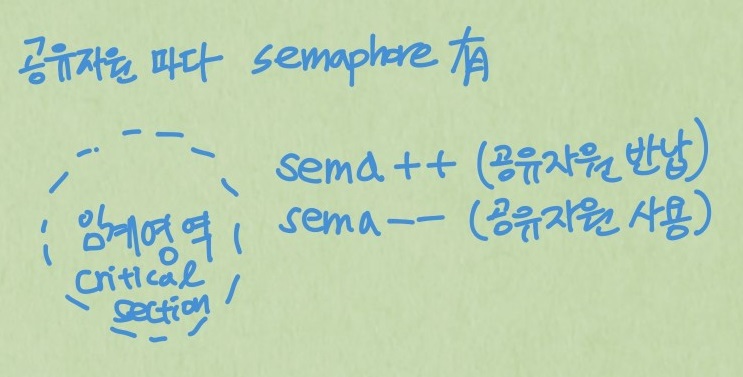 공유자원 마다 semaphore 有
sema ++ (공유자원 반납)
sema -- (공유자원 사용)
임계영역
critical
section